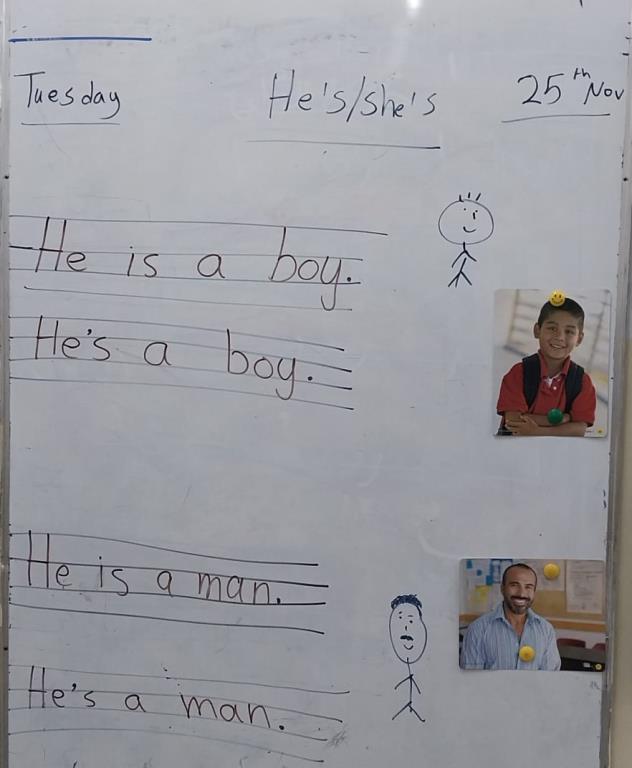 Tuesday He's/she's 25th Nov
He is a boy.
He's a boy.
He is a man.
He's a man.